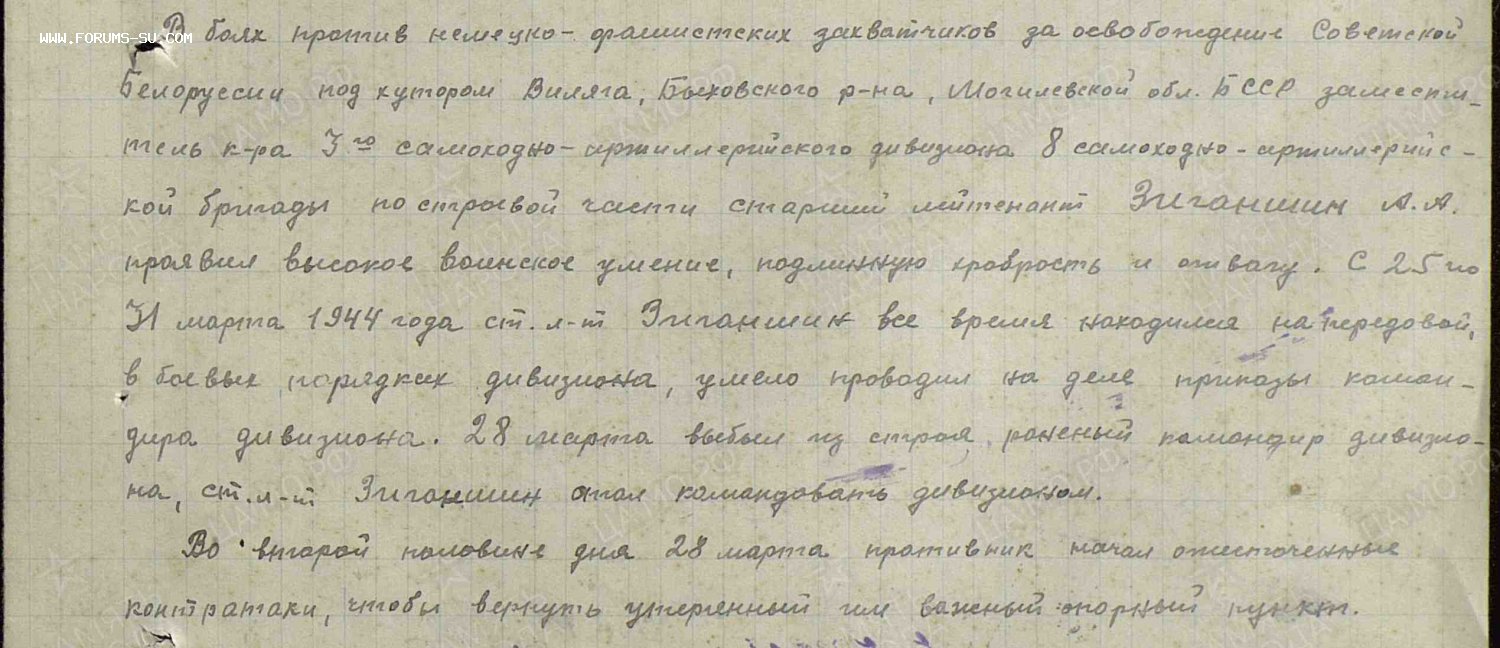 WWW.FORUMS-SU.COM
В боях против немецко-фашистских захватчиков за освобождение Советской
Белоруссии под хутором Виляга, Быховского р-на, Могилевской обл. БССР замести-
тель к-ра 3го самоходно-артиллерийского дивизиона 8 самоходно-артиллерийс-
кой бригады по строевой части старший лейтенант Зиганшин А.А.
проявил высокое воинское умение, подлинную храбрость и отвагу. С 25 по
31 марта 1944 года ст. л-т Зиганшин все время находился на передовой,
в боевых порядках дивизиона, умело проводил на деле приказы коман-
дира дивизиона. 28 марта выбыл из строя, раненый командир дивизио-
на, ст. л-т Зиганшин стал командовать дивизионом.
Во второй половине дня 28 марта противник начал ожесточенные
контратаки, чтобы вернуть утерянный им важный опорный пункт.